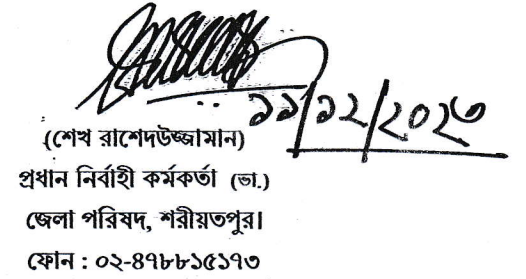 ১১/১২/২০২৩
(শেখ রাশেদউজ্জামান)
প্রধান নির্বাহী কর্মকর্তা (ভা.)
জেলা পরিষদ, শরীয়তপুর।
ফোন : ০২-৪৭৮৮১৫১৭৩